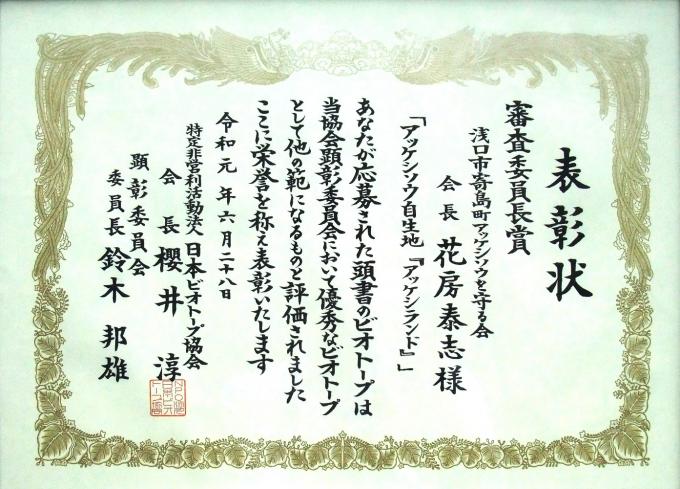 表彰状
審査委員長賞
浅口市寄島町アッケシソウを守る会
会長 花房泰志様
「アッケシソウ自生地『アッケシランド』」
あなたが応募された頭書のビオトープは
当協会顕彰委員会において優秀なビオトープ
として他の範になるものと評価されました
ここに栄誉を称え表彰いたします
令和元年六月二十八日
特定非営利活動法人 日本ビオトープ協会
会長 櫻井 淳
顕彰委員会
委員長 鈴木邦雄